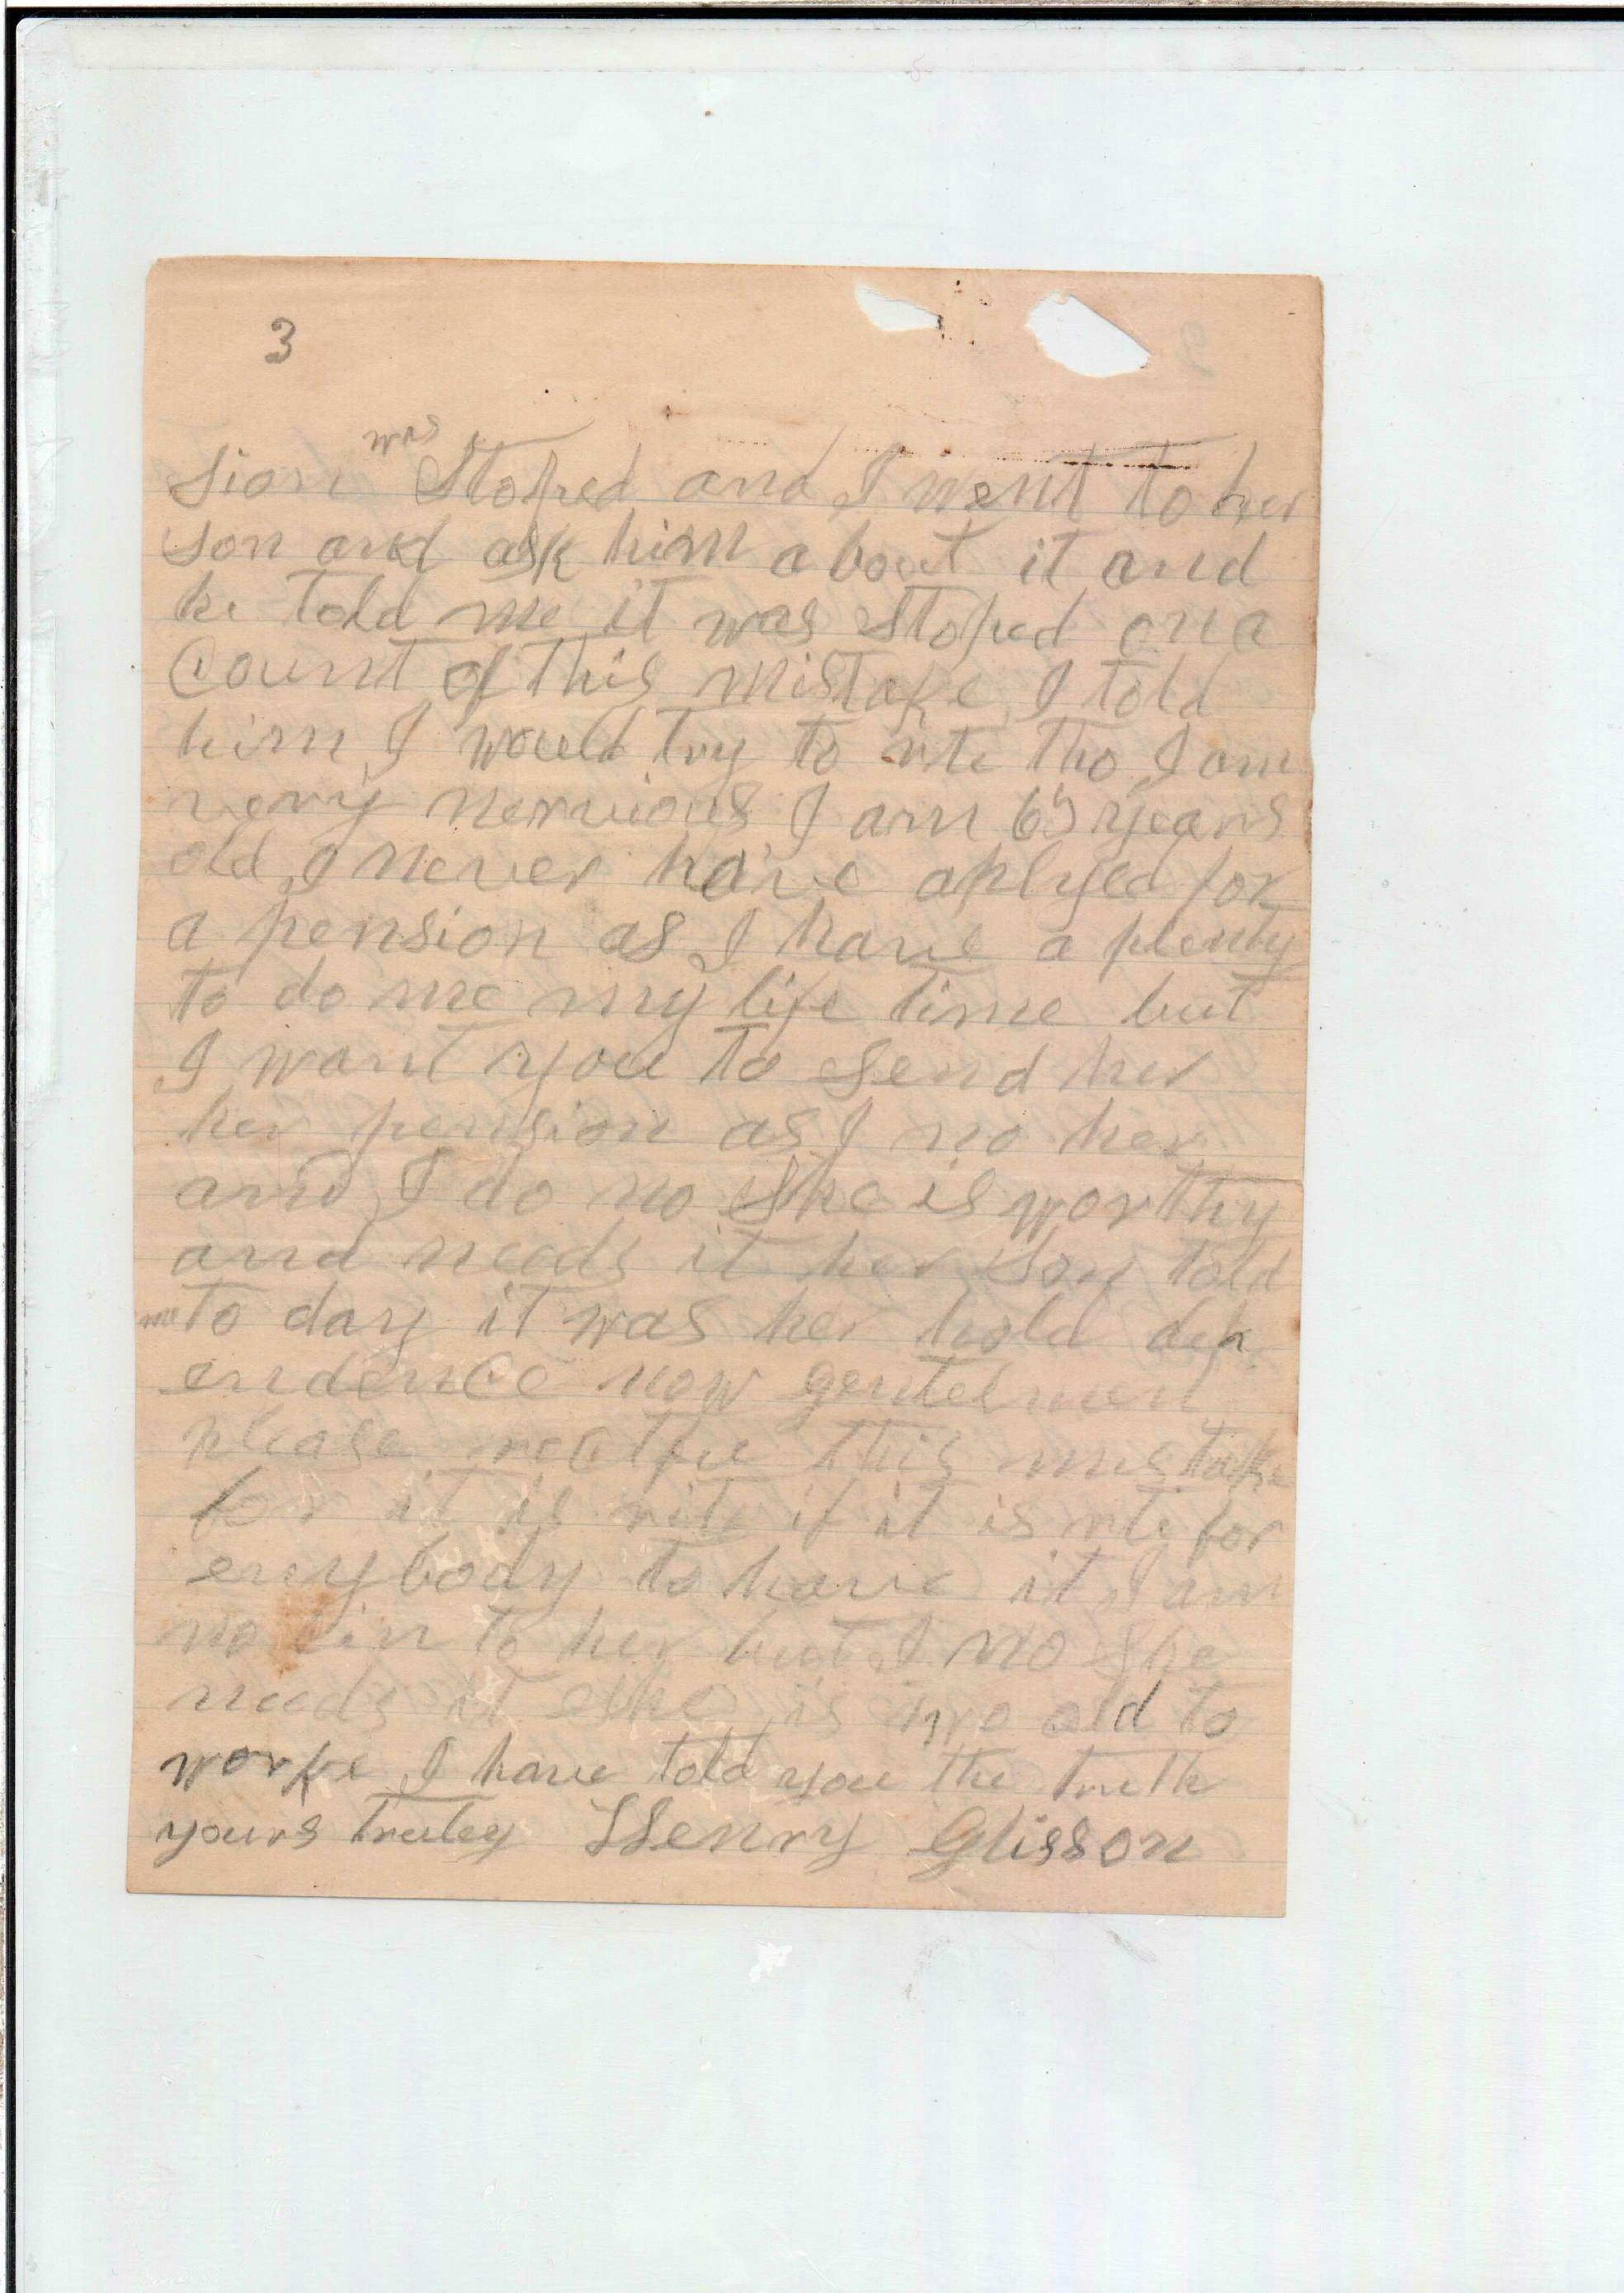 3
was
sion Stoped and I went to her
son and ask him a bout it and
he told me it was stoped on a
Count of this mistake I told
him I would try to rite tho I am
very nervious I am 65 years
old I never have aplyed for
a pension as I have a plenty
to do me my life time but
I want you to send her
her pension as I no her
and I do no she is worthy
and needs it her son told
me to day it was her hold dep
endence now gentelmen
please this mistake
for it is rite if it is rite for
eny body to have it I am
no kin to her but I no she
needs it she is two old to
worke I have told you the truth
yours truley Henry Glisson